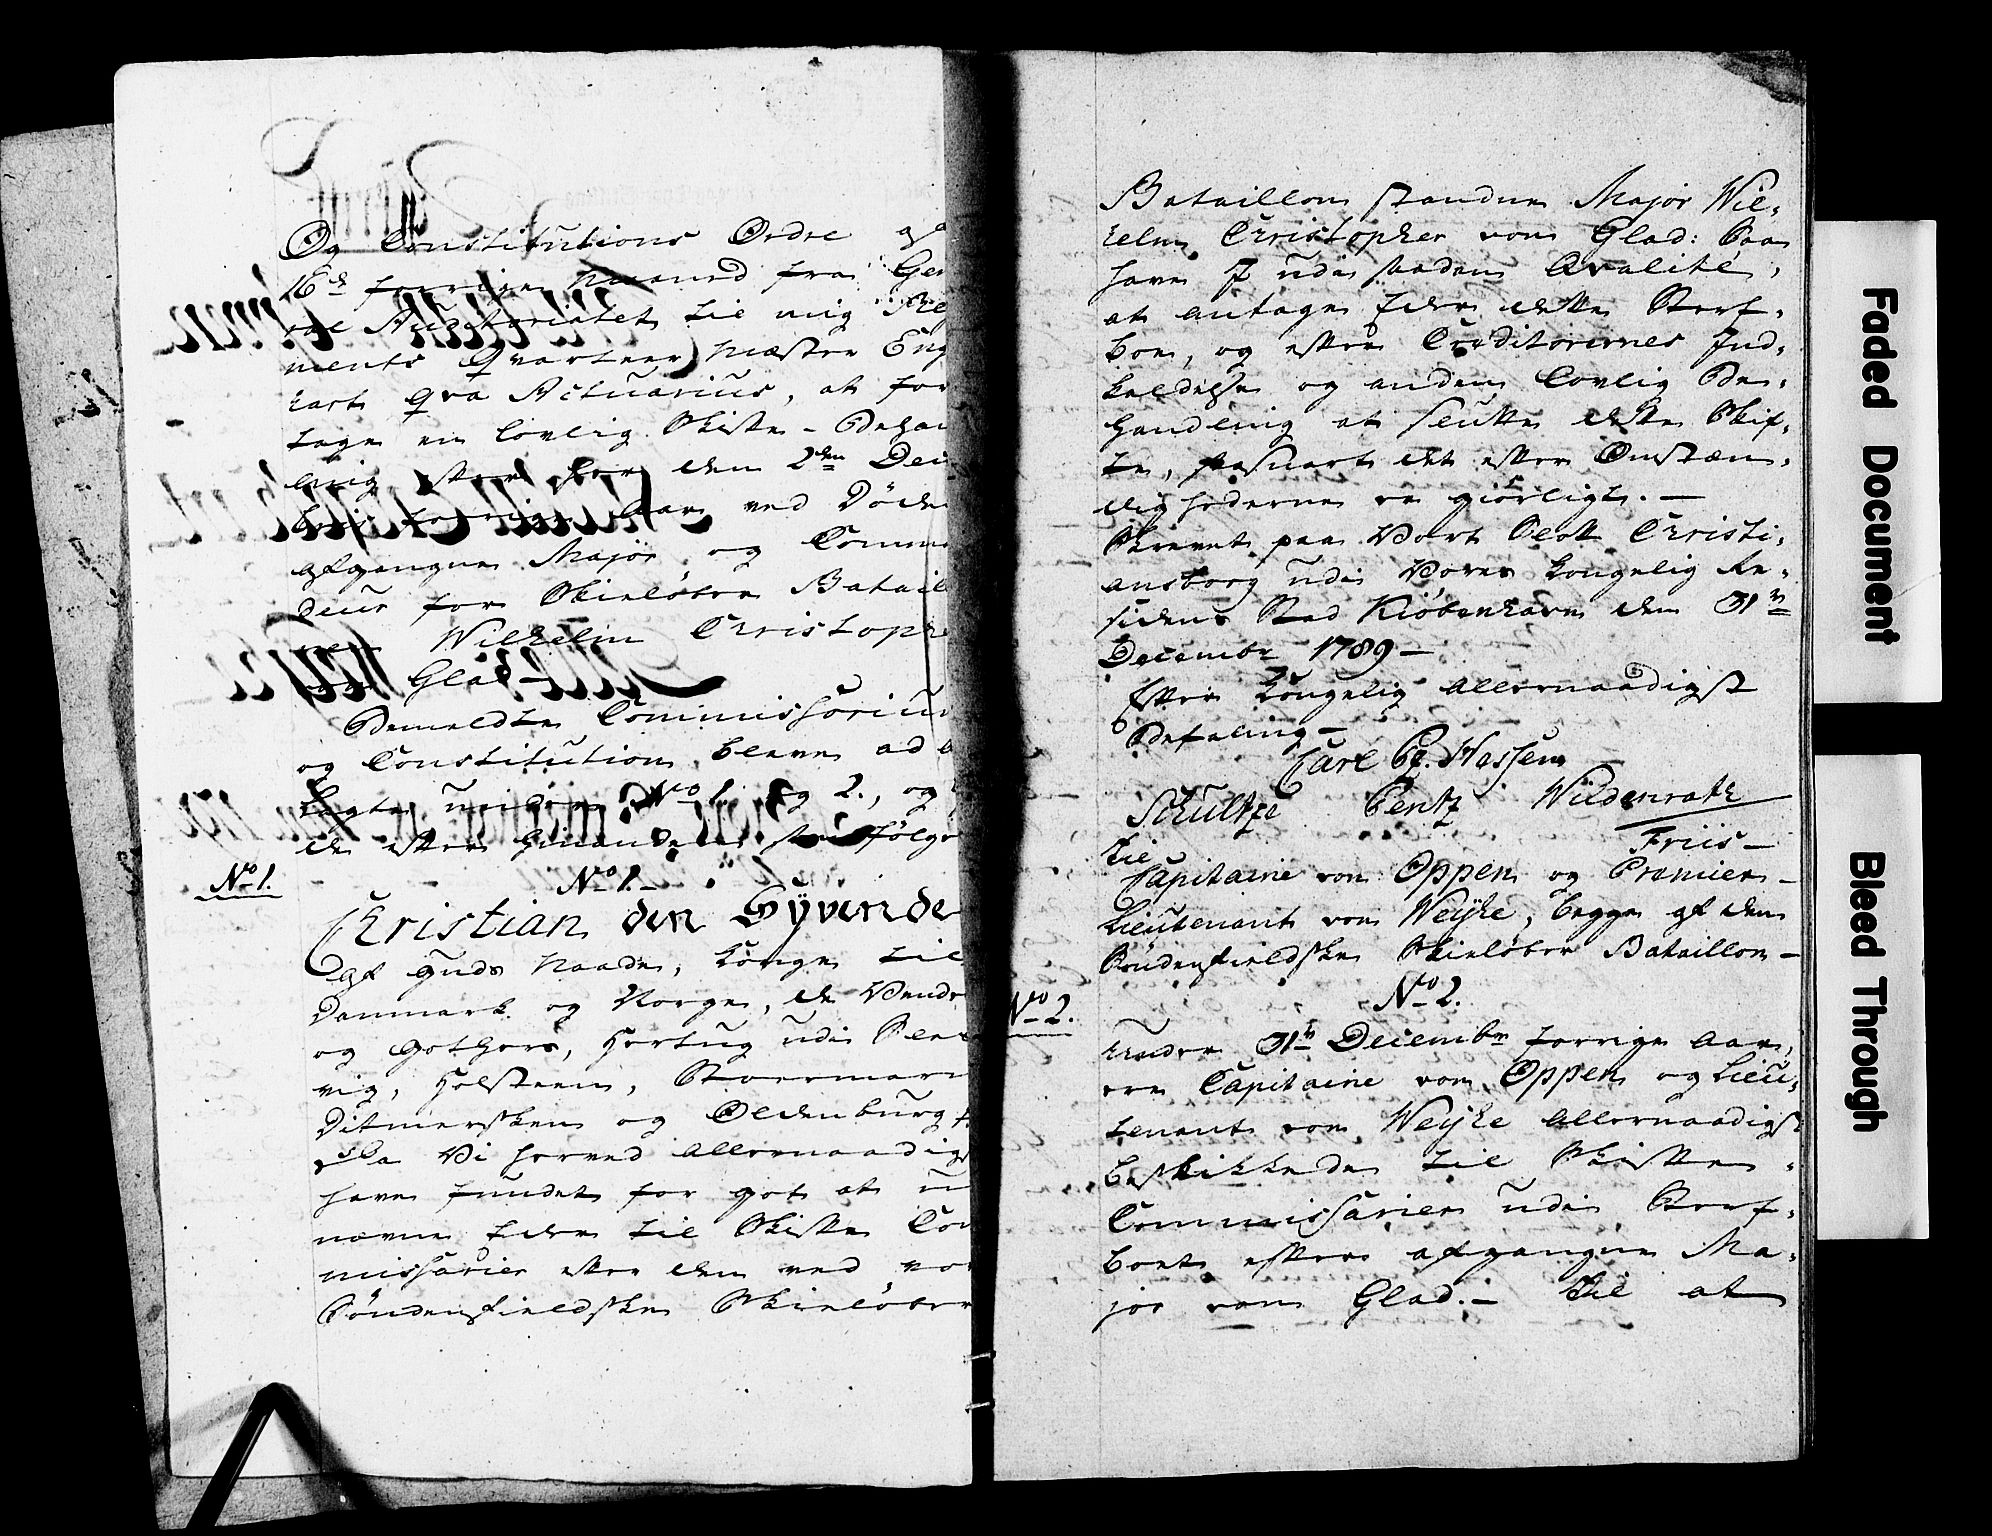 Og Constitutions Ordre af
16de forrige Maaned fra Gen
ral Auditoriatet til mig Re
ments Qvarteer Mæster Eng
hart qva Actuarius, at fore
tage en lovlig Skifte-Behan
ling efter den 2den Dec
forrige Aar ved Døden
afgangne Major og Comman
deur for Skieløber Batail
Wilhelm Christoph
von Glad
Bemeldte Commissorium
og Constitution bleve ad
lagte under No 1. og 2., og
de efter hinanden som følger
No 1.
No 1.
Christian den Syvende
af Guds Naade, Konge til
Danmark og Norge, de Vend
og Gothers, Hertug udi Sles
vig, Holsteen, Stormarn
Ditmersken og Oldenburg
Vi herved allernaadigst
have fundet for got at ud
nævne Eder til Skifte Com
missarier efter den ved vor
Søndenfieldske Skieløber
Bataillon standne Major Wil-
helm Christopher von Glad: Saa
have I udi saadan Qvalité,
at antage Eder dette Sterf-
boe, og efter Creditorernes Ind-
kaldelse og anden lovlig Be-
handling at slutte dette Skif-
te, saasnart det efter Omstæn-
dighederne er giørligt. —
Skrevet paa Vort Slott Christi-
ansborg udi Vores Kongelig Re-
sidens Stad Kiøbenhavn den 31te
Decembr 1789 —
Efter Kongelig allernaadigst
Befaling —
Carl Pz. Hessen
Schultze Bentz Wildenrath
Friis —
Til
Capitaine von Oppen og Premier-
Lieutenant von Weyhe, begge af den
Søndenfieldske Skieløber Bataillon —
No 2.
No 2.
Under 31te Decembr forrige Aar,
ere Capitaine von Oppen og Lieu-
tenant von Weyhe allernaadigst
beskikkede til Skifte-
Commissarier udi Sterf-
boet efter afgangne Ma-
jor von Glad. — Til at
Faded Document
Bleed Through